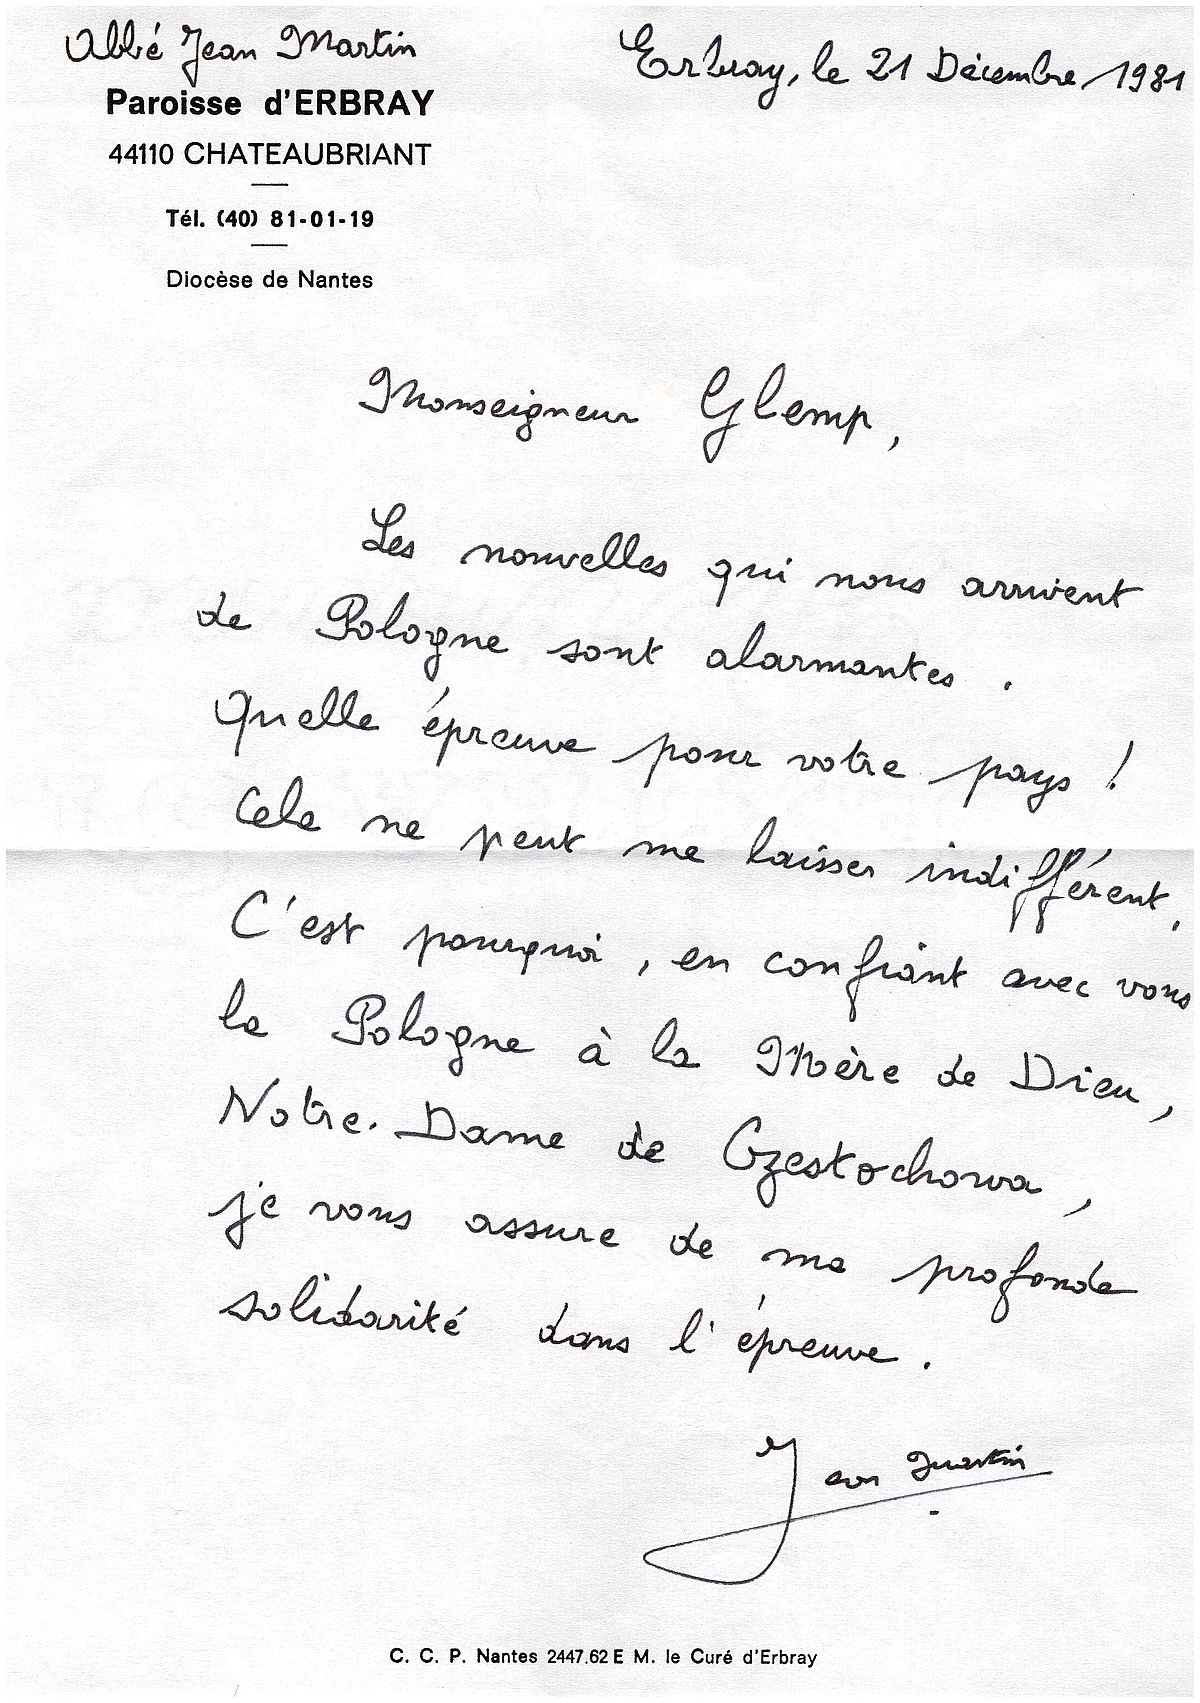 Abbé Jean Martin
Paroisse d'ERBRAY
44110 CHATEAUBRIANT
Tél. (40) 81-01-19
Diocèse de Nantes
Erbray, le 21 Décembre 1981
Monseigneur Glemp,
Les nouvelles qui nous arrivent
de Pologne sont alarmantes.
Quelle épreuve pour votre pays !
Cela ne peut me laisser indifférent,
C'est pourquoi, en confiant avec vous
la Pologne à la Mère de Dieu,
Notre-Dame de Czestochowa,
je vous assure de ma profonde
solidarité dans l'épreuve.
Jean Martin
C. C. P. Nantes 2447.62 E M. le Curé d'Erbray